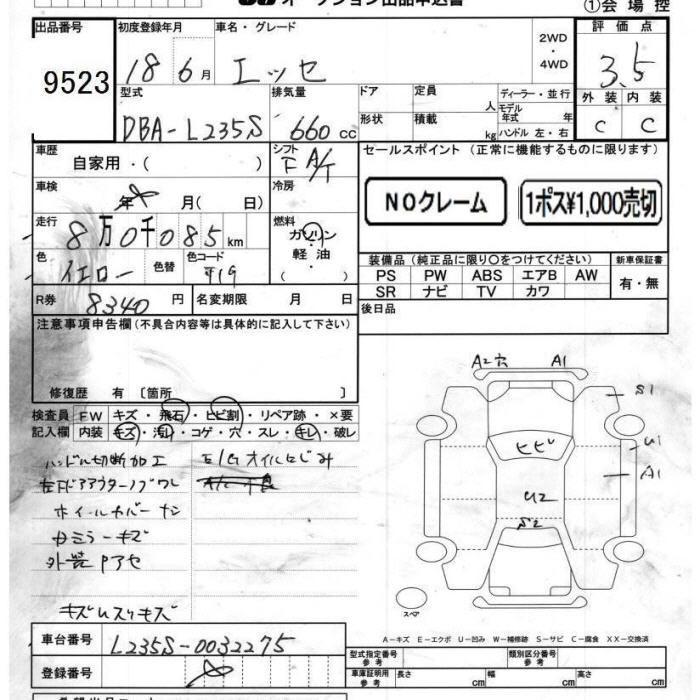 オークション出品申込書
①会場控
出品番号 9523
初度登録年月 18 6月
車名・グレード エッセ
2WD・4WD
評価点 3.5
外装 C 内装 C
型式 DBA-L235S
排気量 660cc
ドア 定員 人
形状 積載 kg
ディーラー・並行
モデル年式 年
ハンドル 左・右
車歴 自家用・( )
シフト F A/T
セールスポイント (正常に機能するものに限ります)
NOクレーム
1ポス¥1,000売切
車検 年 月( 日)
冷房
走行 8万0千085km
燃料 ガソリン・軽油・( )
色 イエロー 色替 色コード
装備品 (純正品に限り○をつけてください)
新車保証書
PS PW ABS エアB AW
SR ナビ TV カワ
有・無
R券 8340円
名変期限 月 日
後日品
注意事項申告欄(不具合内容等は具体的に記入して下さい)
修復歴 有 〔箇所 〕
検査員記入欄
FW キズ・飛石・ヒビ割・リペア跡・×要
内装 キズ・汚れ・コゲ・穴・スレ・キレ・破し
ハンドル切断加工
E/Gオイルにじみ
ホイールカバーナシ
カミラーキズ
外装
A2穴 A1
S1
U1
A1
ヒビ
U2
S2
スペア
A-キズ E-エクボ U-凹み W-補修跡 S-サビ C-腐食 XX-交換済
車台番号 L235S-0032275
登録番号
型式指定番号 参考
類別区分番号 参考
車庫証明用 参考 長さ cm 幅 cm 高さ cm